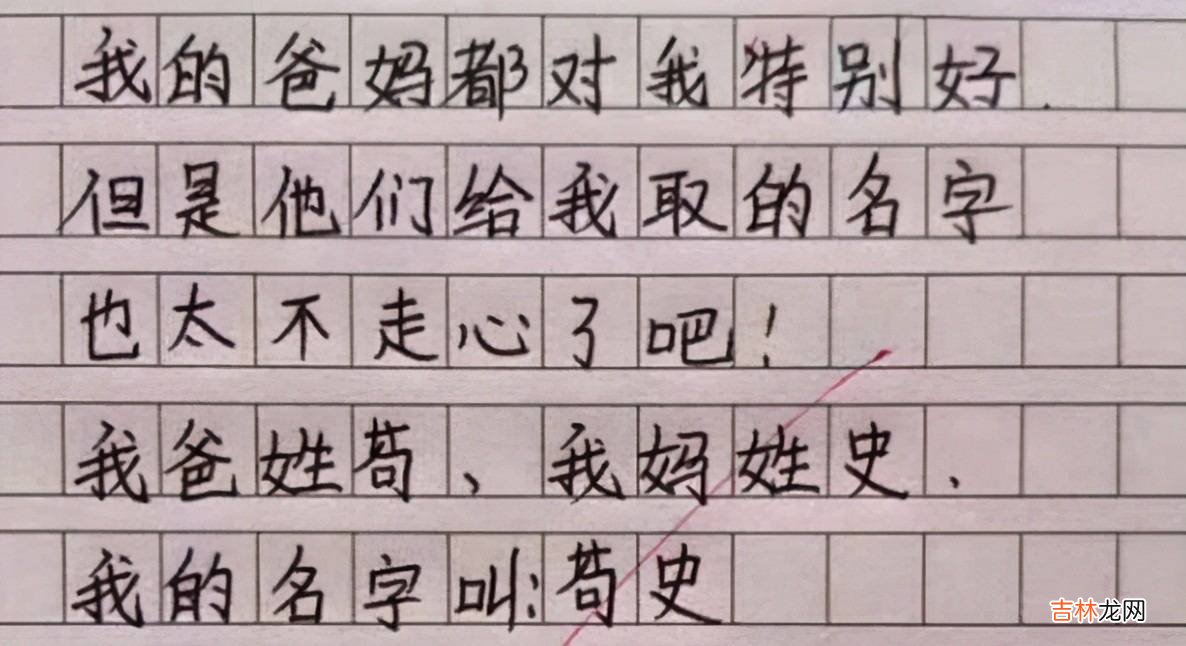 我的爸妈都对我特别好.
但是他们给我取的名字
也太不走心了吧!
我爸姓苟、我妈姓史.
我的名字叫:苟史
吉林龙网